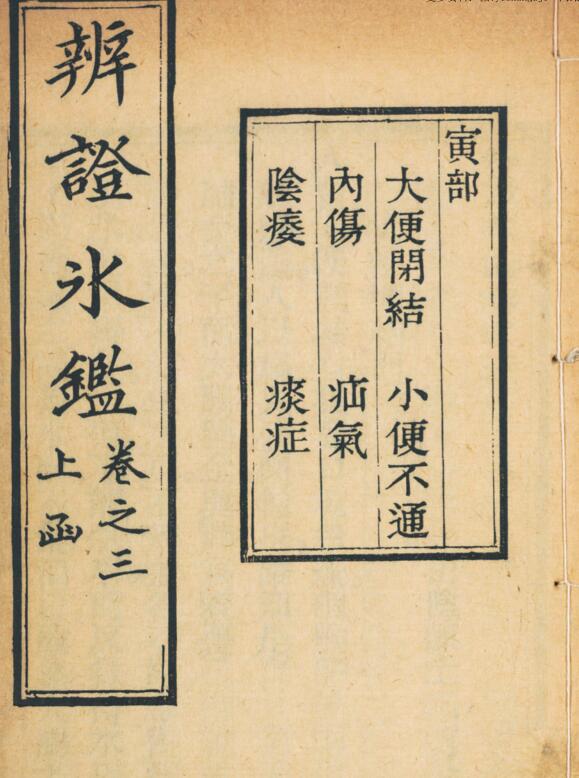 寅部
大便閉結 小便不通
內傷 疝氣
陰痿 痰症
辨證氷鑑
卷之三
上函